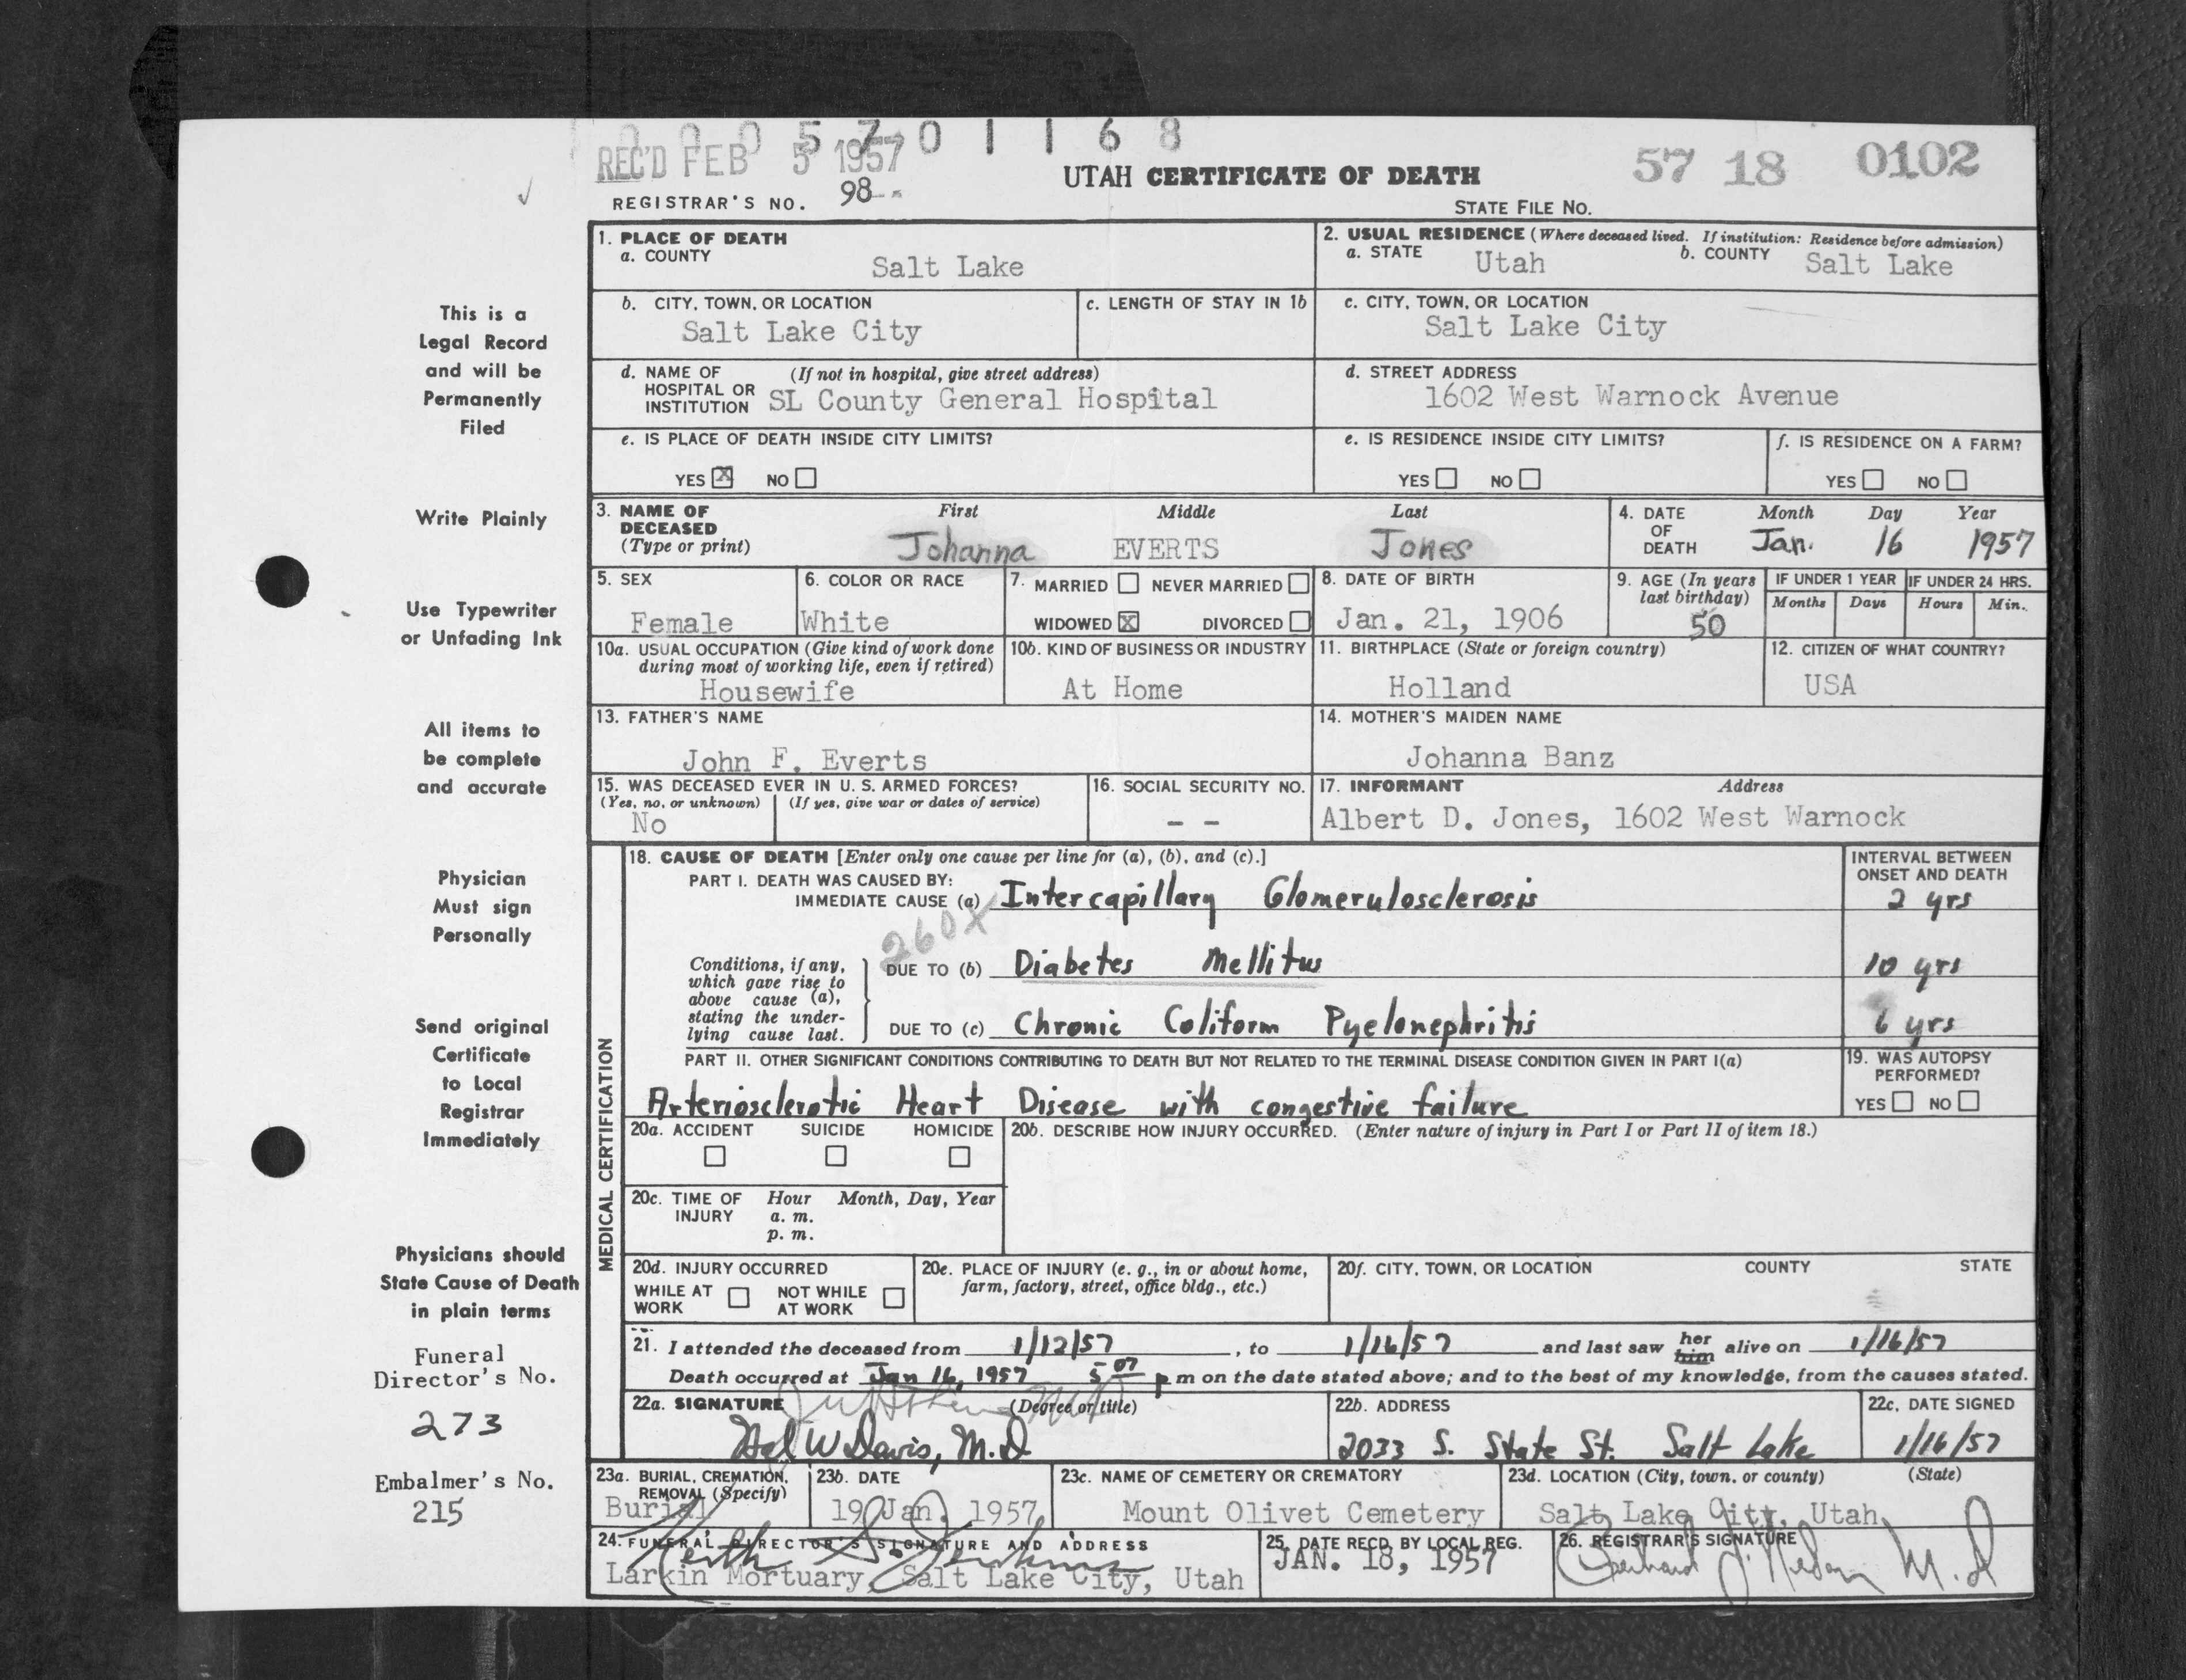 0 0 0 5 7 0 1 1 6 8
REC'D FEB 5 1957
UTAH CERTIFICATE OF DEATH
57 18 0102
REGISTRAR'S NO. 98
STATE FILE NO.
This is a
Legal Record
and will be
Permanently
Filed
Write Plainly
Use Typewriter
or Unfading Ink
All items to
be complete
and accurate
Physician
Must sign
Personally
Send original
Certificate
to Local
Registrar
Immediately
Physicians should
State Cause of Death
in plain terms
Funeral
Director's No.
273
Embalmer's No.
215
1. PLACE OF DEATH
a. COUNTY
Salt Lake
2. USUAL RESIDENCE (Where deceased lived. If institution: Residence before admission)
a. STATE Utah b. COUNTY Salt Lake
b. CITY, TOWN, OR LOCATION
Salt Lake City
c. LENGTH OF STAY IN 1b
c. CITY, TOWN, OR LOCATION
Salt Lake City
d. NAME OF (If not in hospital, give street address)
HOSPITAL OR
INSTITUTION SL County General Hospital
d. STREET ADDRESS
1602 West Warnock Avenue
e. IS PLACE OF DEATH INSIDE CITY LIMITS?
YES X NO
e. IS RESIDENCE INSIDE CITY LIMITS?
YES NO
f. IS RESIDENCE ON A FARM?
YES NO
3. NAME OF First Middle Last
DECEASED
(Type or print) Johanna EVERTS Jones
4. DATE Month Day Year
OF
DEATH Jan. 16 1957
5. SEX
Female
6. COLOR OR RACE
White
7. MARRIED NEVER MARRIED
WIDOWED X DIVORCED
8. DATE OF BIRTH
Jan. 21, 1906
9. AGE (In years
last birthday)
50
IF UNDER 1 YEAR IF UNDER 24 HRS.
Months Days Hours Min.
10a. USUAL OCCUPATION (Give kind of work done
during most of working life, even if retired)
Housewife
10b. KIND OF BUSINESS OR INDUSTRY
At Home
11. BIRTHPLACE (State or foreign country)
Holland
12. CITIZEN OF WHAT COUNTRY?
USA
13. FATHER'S NAME
John F. Everts
14. MOTHER'S MAIDEN NAME
Johanna Banz
15. WAS DECEASED EVER IN U. S. ARMED FORCES?
(Yes, no, or unknown) (If yes, give war or dates of service)
No
16. SOCIAL SECURITY NO.
- -
17. INFORMANT Address
Albert D. Jones, 1602 West Warnock
MEDICAL CERTIFICATION
18. CAUSE OF DEATH [Enter only one cause per line for (a), (b), and (c).]
INTERVAL BETWEEN
ONSET AND DEATH
PART I. DEATH WAS CAUSED BY:
IMMEDIATE CAUSE (a) Intercapillary Glomerulosclerosis 2 yrs
260X
Conditions, if any,
which gave rise to
above cause (a),
stating the under-
lying cause last.
DUE TO (b) Diabetes Mellitus 10 yrs
DUE TO (c) Chronic Coliform Pyelonephritis 6 yrs
PART II. OTHER SIGNIFICANT CONDITIONS CONTRIBUTING TO DEATH BUT NOT RELATED TO THE TERMINAL DISEASE CONDITION GIVEN IN PART I(a)
Arteriosclerotic Heart Disease with congestive failure
19. WAS AUTOPSY
PERFORMED?
YES NO
20a. ACCIDENT SUICIDE HOMICIDE
20b. DESCRIBE HOW INJURY OCCURRED. (Enter nature of injury in Part I or Part II of item 18.)
20c. TIME OF Hour Month, Day, Year
INJURY a. m.
p. m.
20d. INJURY OCCURRED
WHILE AT NOT WHILE
WORK AT WORK
20e. PLACE OF INJURY (e. g., in or about home,
farm, factory, street, office bldg., etc.)
20f. CITY, TOWN, OR LOCATION COUNTY STATE
21. I attended the deceased from 1/12/57, to 1/16/57 and last saw her him alive on 1/16/57
Death occurred at Jan 16, 1957 5 07 p m on the date stated above; and to the best of my knowledge, from the causes stated.
22a. SIGNATURE (Degree or title)
Hal W Davis, M.D
22b. ADDRESS
2033 S. State St. Salt Lake
22c. DATE SIGNED
1/16/57
23a. BURIAL, CREMATION,
REMOVAL (Specify)
Burial
23b. DATE
19 Jan. 1957
23c. NAME OF CEMETERY OR CREMATORY
Mount Olivet Cemetery
23d. LOCATION (City, town, or county) (State)
Salt Lake City, Utah
24. FUNERAL DIRECTOR'S SIGNATURE AND ADDRESS
Larkin Mortuary, Salt Lake City, Utah
25. DATE RECD. BY LOCAL REG.
JAN. 18, 1957
26. REGISTRAR'S SIGNATURE
M.D